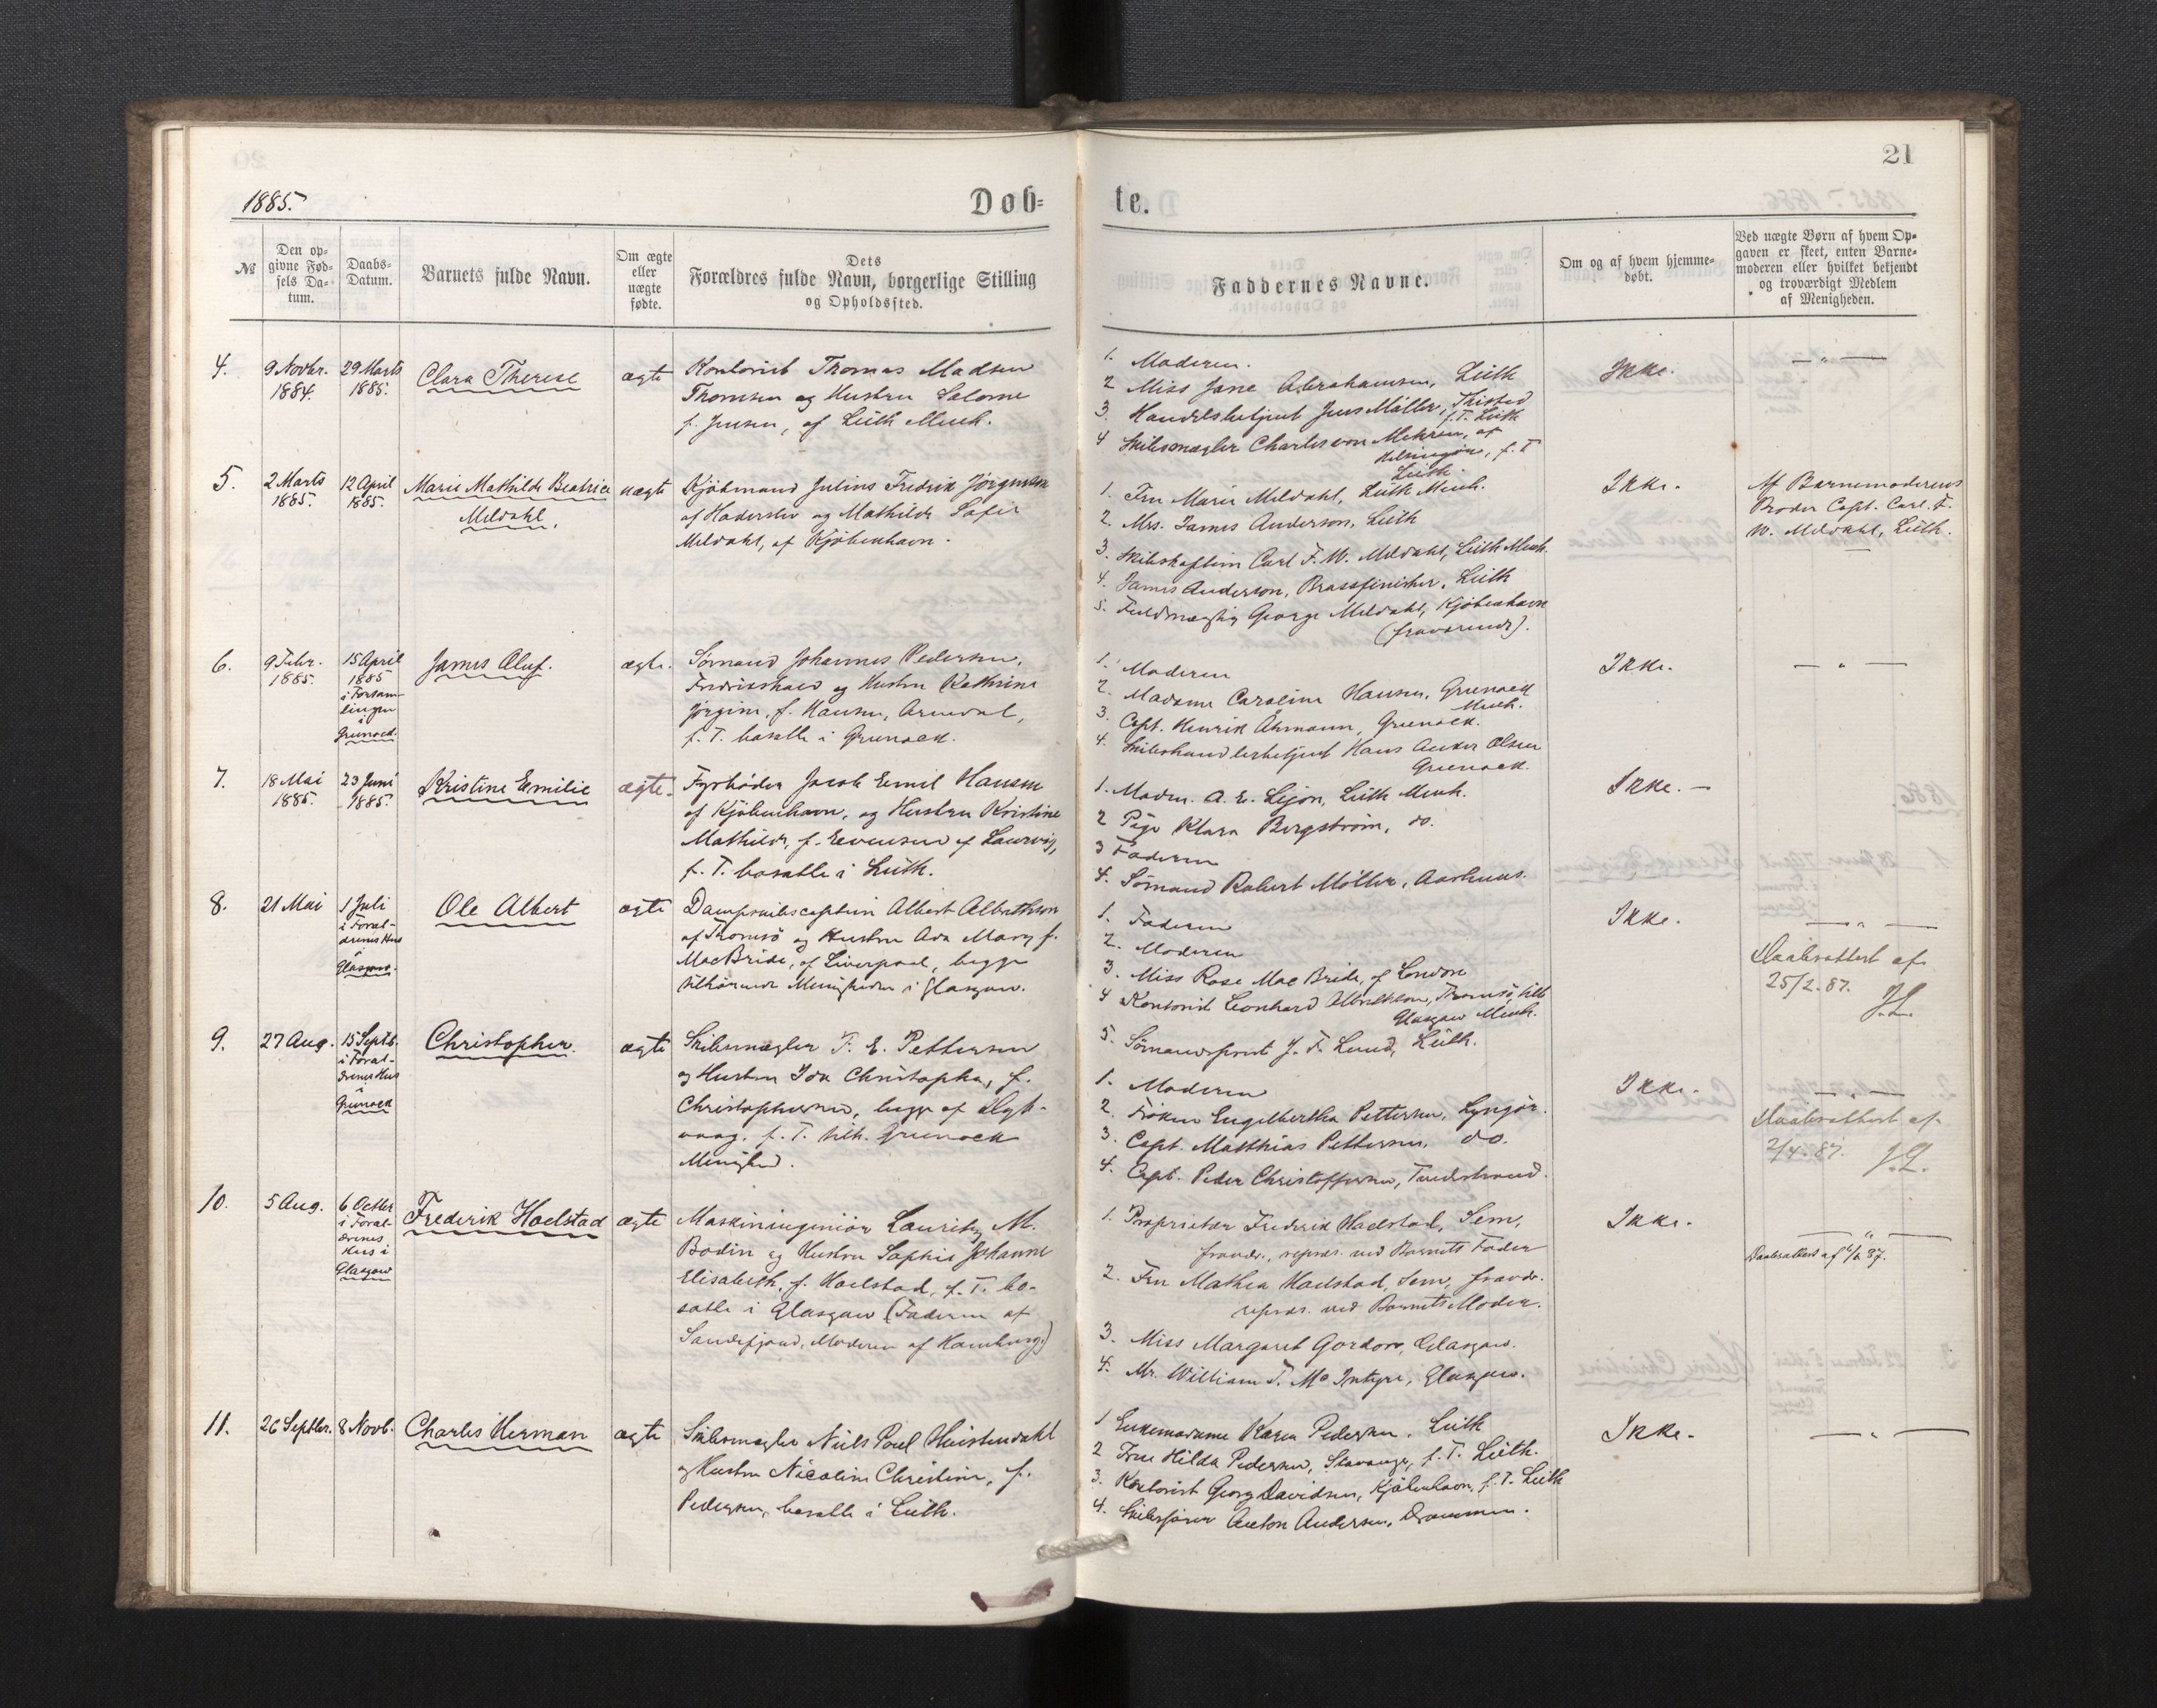 21
1885.
Døb-
te.
№
Den op-
givne Fød-
sels Da-
tum.
Daabs-
Datum.
Barnets fulde Navn.
Om ægte
eller
uægte
fødte.
Dets
Forældres fulde Navn, borgerlige Stilling
og Opholdssted.
Faddernes Navne.
Om og af hvem hjemme-
døbt.
Ved uægte Børn af hvem Op-
gaven er skeet, enten Barne-
moderen eller hvilket bekjendt
og troværdigt Medlem
af Menigheden.
4.
9 Novbr.
1884.
29 Marts
1885.
Clara Therese
ægte
Kontorist Thomas Madsen
Thomsen og Hustru Salome
f. Jensen, af Leith Menh.
1. Moderen.
2 Miss Jane Abrahamsen, Leith
3. Handelsbetjent Jens Møller, Thisted
f. T. Leith
4 Skibsmægler Charles von Mehren, af
Helsingør, f. T
Leith.
Ikke.
— " —
5.
2 Marts
1885.
12 April
1885.
Marie Mathilde Beatrice
Meldahl.
uægte
Kjøbmand Julius Fredrik Jörgensen
af Haderslev og Mathilde Sofie
Meldahl, af Kjöbenhavn.
1. Fru Marie Meldahl, Leith Menh.
2. Mrs. James Anderson, Leith
3. Skibskaptein Carl F. W. Meldahl, Leith Menh.
4. James Anderson, Brassfinisher, Leith
5. Fuldmægtig George Meldahl, Kjöbenhavn
(fraværende).
Ikke.
Af Barnemoderens
Broder Capt. Carl F.
W. Meldahl, Leith.
6.
9 Febr.
1885.
15 April
1885
i Forsam-
lingen
i
Grenock.
James Oluf.
ægte.
Sömand Johannes Pedersen,
Fredrikshald og Hustru Kathrine
Jörgine, f. Hansen, Arendal,
f. T. bosatte i Grenock.
1. Moderen
2. Madame Caroline Hansen, Grenock
Menh.
3. Capt. Henrik Åhrmann, Grenock.
4. Skibshandlerbetjent Hans Anker Olsen
Grenock.
Ikke.
— " —
7.
18 Mai
1885.
23 Juni
1885.
Kristine Emilie
ægte.
Fyrböder Jacob Emil Hansen
af Kjöbenhavn, og Hustru Kristine
Mathilde, f. Evensen af Laurvig,
f. T. bosatte i Leith.
1. Madm. A. E. Lejon, Leith Menh.
2 Pige Klara Bergström, do.
3 Faderen
4. Sömand Robert Möller, Aarhuus.
Ikke. —
8.
21 Mai
1 Juli
i Foræl-
drenes Hus
i
Glasgow.
Ole Albert
ægte
Dampskibscaptein Albert Albethson
af Tromsö og Hustru Ada Mary f.
MacBride, af Liverpool, begge
tilhörende Menigheden i Glasgow.
1. Faderen
2. Moderen
3. Miss Rose Mac Bride, of London
4 Kontorist Leonhard Albrethson, Tromsö, tilh
Glasgow Menh.
5. Sömandsprest J. F. Lund, Leith.
Ikke.
— " —
Daabsattest af
25/2. 87.
9.
27 Aug.
15 Septb.
i Foræl-
drenes Hus
i
Grenock
Christopher.
ægte
Skibsmægler F. E. Pettersen
og Hustru Ida Christopha, f.
Christophersen, begge af Dyb-
vaag. f. T. tilh. Grenock
Menighed.
1. Moderen
2. Fröken Engelbertha Pettersen, Lyngör.
3. Capt. Matthias Pettersen, do.
4. Capt. Peder Christoffersen, Tvedestrand.
Ikke.
— " —
Daabsattest af
2/4. 87.
10.
5 Aug.
6 Octbr
i Foræl-
drenes
Hus i
Glasgow
Frederik Hoelstad
ægte
Maskiningeniör Lauritz M.
Bodin og Hustru Sophie Johanne
Elisabeth, f. Hoelstad, f. T. bo-
satte i Glasgow (Faderen af
Sandefjord, Moderen af Hamburg)
1. Proprietær Frederik Hoelstad, Sem,
fravær., repræs. ved Barnets Fader
2. Fru Mathea Hoelstad, Sem, fravær.
repræs. ved Barnets Moder.
3. Miss Margaret Gordon, Glasgow.
4. Mr. William T. Mc Intyre, Glasgow.
Ikke.
— " —
Daabsattest af 87.
11.
26 Septbr.
8 Novb.
Charles Herman
ægte
Skibsmægler Niels Poul Heistendahl
og Hustru Nicoline Christine, f.
Pedersen, bosatte i Leith.
1 Enkemadame Karen Pedersen, Leith
2 Frue Hilda Pedersen, Stavanger, f. T. Leith.
3. Kontorist Georg Davidsen, Kjöbenhavn, f. T. Leith
4. Skibsförer Anton Andersen, Drammen.
Ikke.
— " —